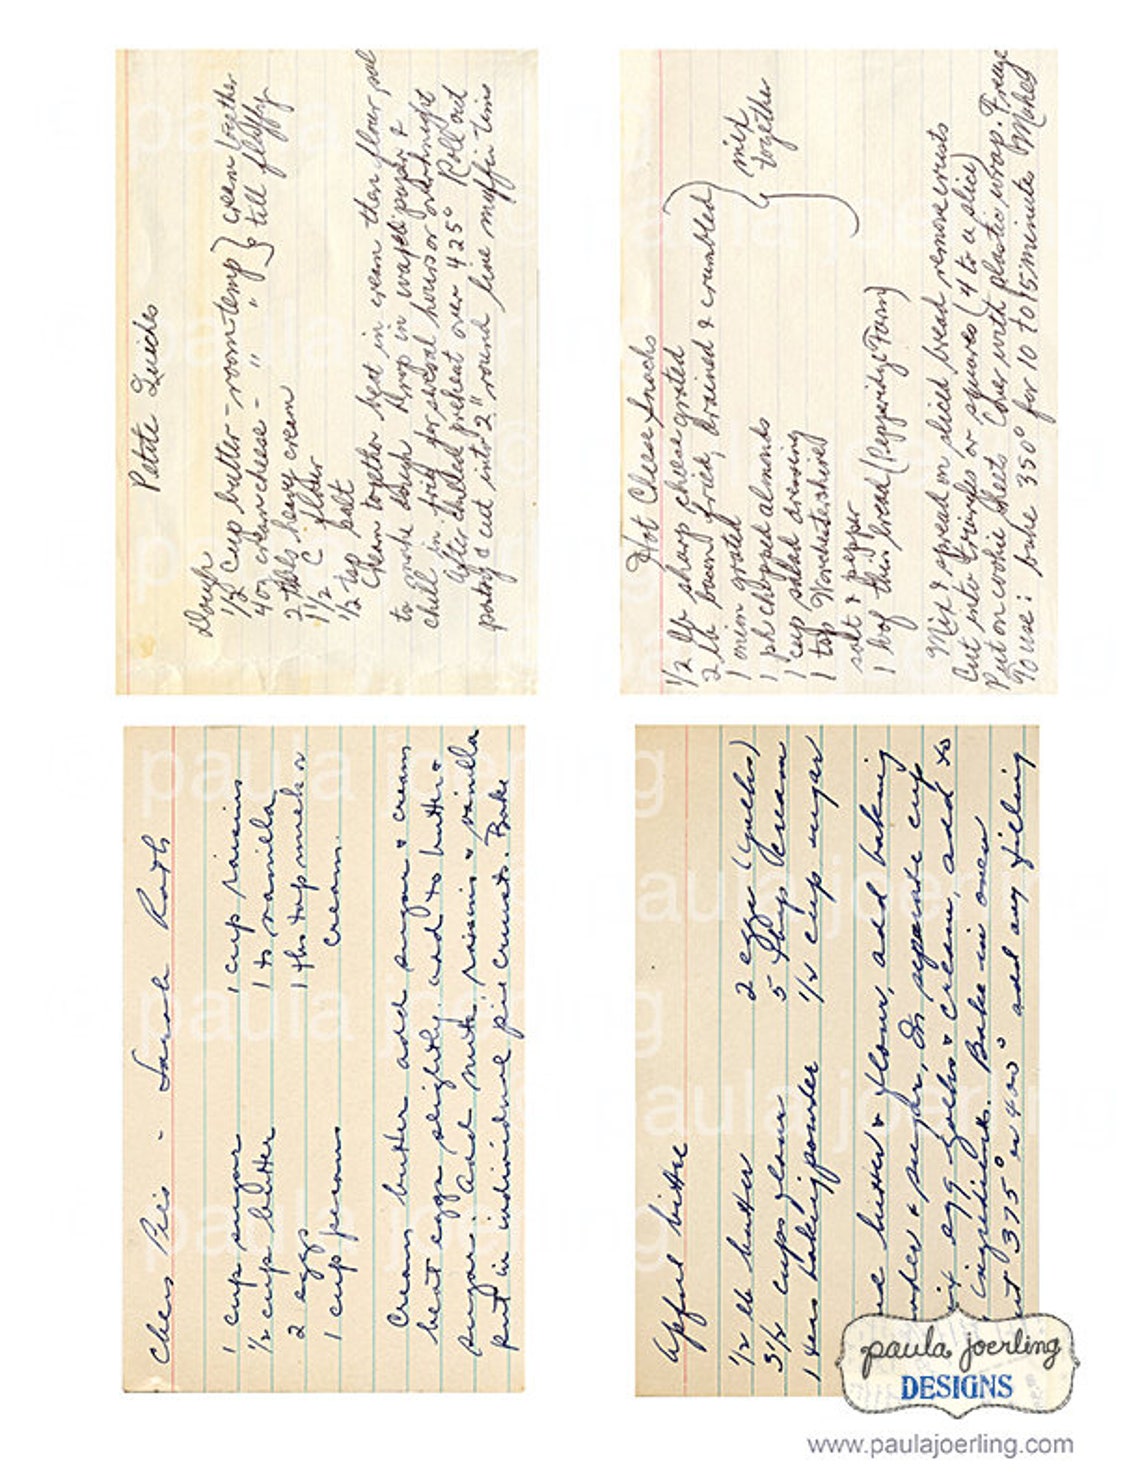 Petite Quiches
Dough
1/2 cup butter - room temp } cream together
4 oz cream cheese - " " } till fluffy
2 tbls heavy cream
1 1/2 C flour
1/2 tsp salt
Cream together beat in cream then flour, salt
to make dough Wrap in waxed paper &
chill in frig for several hours or overnight
After chilled preheat oven 425° Roll out
pastry & cut into 2" round line muffin tins
Hot Cheese Snacks
1/2 lb sharp cheese grated
2 lb bacon fried, drained & crumbled
1 onion grated
1 pk chopped almonds
1 cup salad dressing
1 tsp Worchestershire
mix
together
salt & pepper
1 loaf thin bread (Pepperidge Farm)
Mix & spread on sliced bread remove crusts
Cut into triangles or squares (4 to a slice)
Put on cookie sheets Cover with plastic wrap. Freeze
To use: bake 350° for 10 to 15 minutes Makes
Chess Pies - Sarah Ruth
1 cup sugar 1 cup raisins
1/2 cup butter 1 ts vanilla
2 eggs 1 tbs top milk or
1 cup pecans cream.
Cream butter add sugar & cream
beat eggs slightly, add to butter &
sugar. add nuts, raisins & vanilla
put in individual pie crusts. Bake
1/2 lb butter 2 eggs (yolks)
3 1/2 cups flour 5 tbsp cream
1 teas baking powder 1/2 cup sugar
butter & flour, add baking
& sugar, In separate cup
egg yolks & cream, add to
ingredients. Bake in oven
at 375° or 400° add any filling
paula joerling
DESIGNS
www.paulajoerling.com